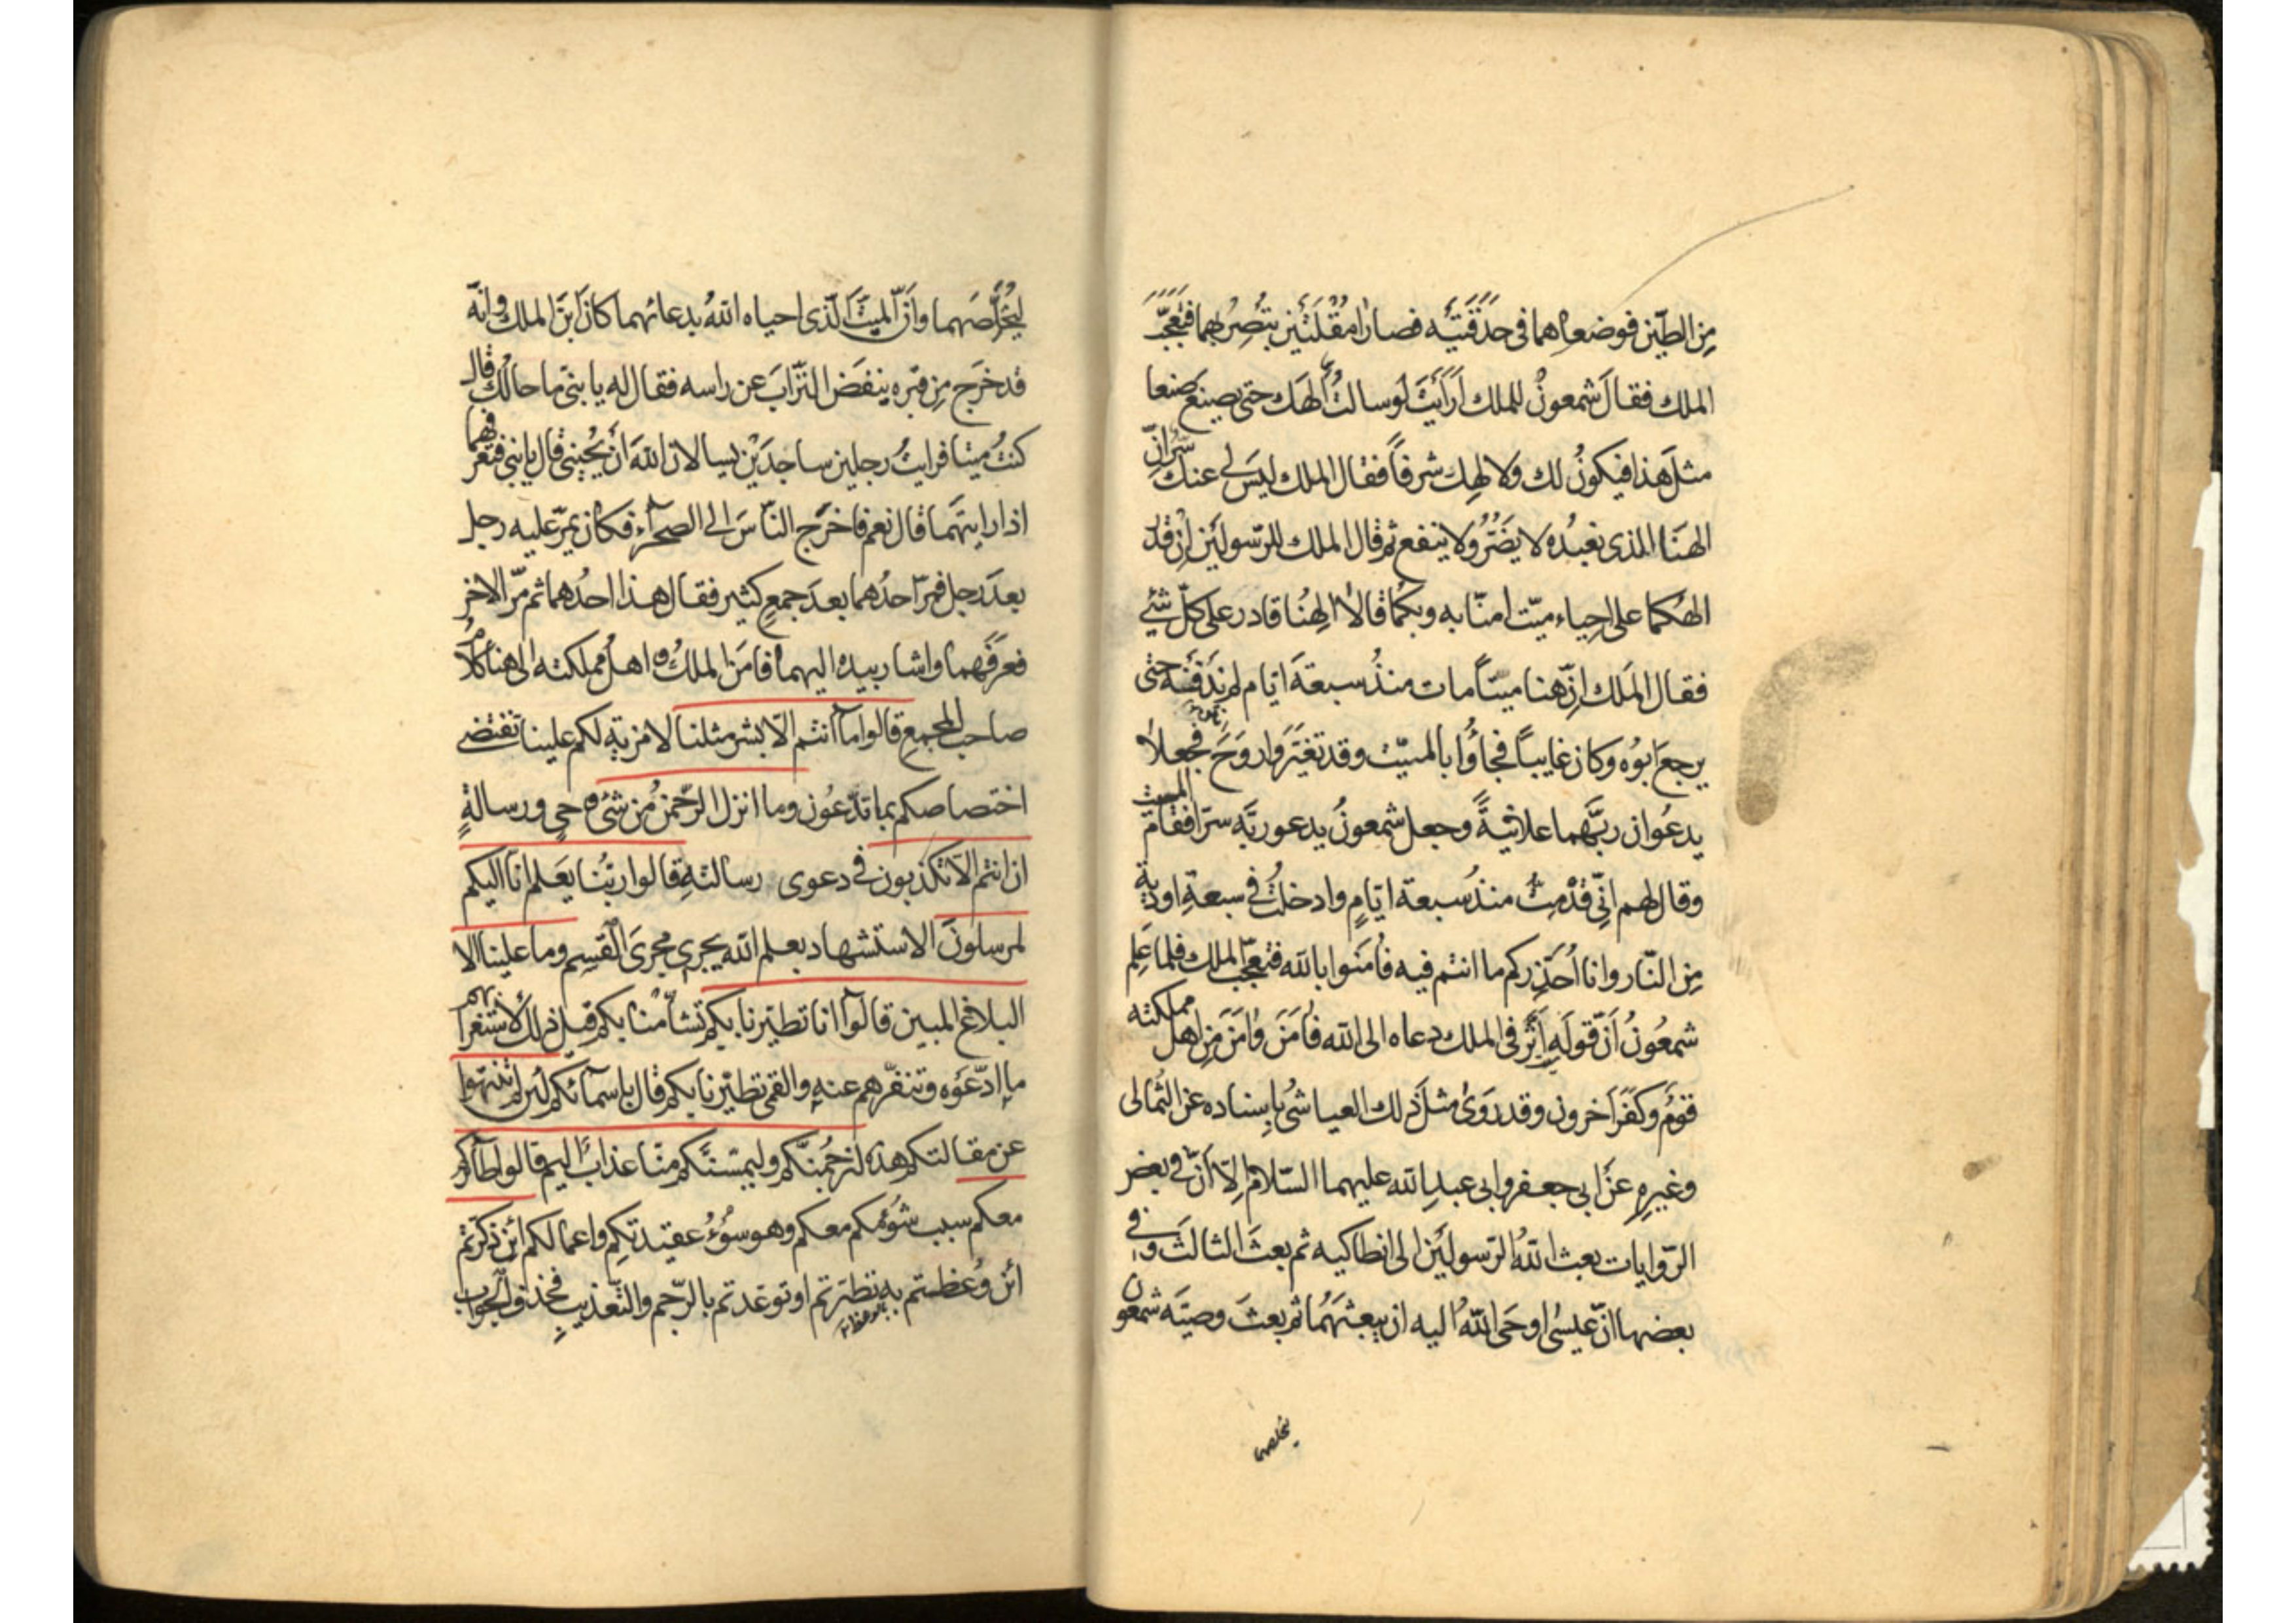 مِن الطّين فوضعاهما فى حَدَقَتَيْه فصارا مُقْلَتَيْن يبْصِرُ بهما فتَعَجَّبَ
الملك فقالَ شمعونُ للملك اَرَاَيْتَ لَوسالتَ اِلٰهَك حتى يصنع صنعا
مثلَ هذا فيكونُ لك ولالهِك شرفاً فقال الملك ليسَ لى عنك سِرّ انّ
الهَنَا الذى نعبُده لا يضُرُّ ولا ينفع ثم قال الملك للرّسولَيْن اِن قدر
الهُكما على اِحياء ميّت امنّا به وبكُما قالا الٰهنُا قادر على كلّ شئ
فقال المَلك اِنّ هنا ميتاً مات منذُ سبعةَ ايّام لم نَدْفنْه حتّى
يرجعَ ابُوه وكان غايباً فجاؤُا بالميّت وقد تغيَّرَ واَروَحَ فجعلاٰ
يدعُوان ربَّهما علانيةً وجعل شمعونُ يدعو ربَّه سرّا فقام الميت
وقال لهم اِنّى قدْمِتُّ منذُ سبعة ايّامٍ وادخلتُ فى سبعةِ اودية
مِن النّار وانا اُحَذِّركم ما انتم فيه فاٰمَنوا بالله فتعجّبَ الملك فلما عَلِم
شمعُونُ اَنّ قولَه اَثَّرَ فى الملك دعاه الى الله فاٰمَنَ واٰمَنَ مِن اهل مملكته
قومٌ وكَفَرَ اٰخرون وقد رَوىٰ مثلَ ذلك العياشىُّ باِسناده عن الثُمالى
وغيرِهِ عَن ابى جعفر وابى عبدِ الله عليهما السّلام اِلّا اَنّ فى بعض
الرّوايات بعث اللهُ الرّسولَيْن الى انطاكيه ثم بعثَ الثالثَ وفى
بعضها انّ عيسٰى اوحَى اللهُ اليه ان يبعثَهُما ثم بعثَ وصيَّه شمعون
يخلصهما
لِيُخَلِّصَهما وانَّ الميّتَ الّذى احياه اللهُ بدعائهما كانَ ابْنَ الملك وانّه
قد خرَج مِن قبْره ينفَضُ التُّرَابَ عن راسه فقال له يا بنىّ ما حالُك قال
كنتُ ميّتا فرايتُ رجلين ساجدَيْن يسالان اللهَ انْ يحْيِنى قال يا بنى فتعرفهما
اذا رايتهَما قال نعم فاخرَج النّاسَ الى الصحرآء فكان يمرّ عليه رجل
بعدَ رجل فمرّ احدُهما بعدَ جمعٍ كثير فقال هذا احدُهما ثم مرّ الاخر
فعرفَهما واشار بيده اليهما فاٰمَنَ الملكُ واهلُ مملكته الى هنا كلامُ
صاحب المجمعِ قالوا ما آنتم الّا بشر مثلنا لا مزية لكم علينا تقتضى
اختصاصكم بما تدّعُون وما انزل الرّحمنُ مِن شئ وحىٍ ورسالةٍ
ان انتم الّا تكذبون فى دعوى رسالته قالوا ربُّنا يعَلم انّا اليكم
لمرسلونَ الاستشهاد بعلم الله يجرى مجرَى القَسِم وما علينا الا
البلاغ المبين قالوآ انا تطيّرنا بكم تشأّمنْا بكم قيل ذلك لاستغرابهم
ما ادّعَوُه وتنفّرهم عنه والقمى تطيّرنا بكم قال باسمآئكم لئن لم تنتهوا
عن مقالتكم هذه لنرجُمنّكم وليمسّنّكم منّا عذابٌ اليم قالوا طآئركم
معكم سبب شؤمُكم معكم وهو سُوْءُ عقيدتكم واعمالكم أئن ذكّرتم
ائن وُعظتم به تطيّرتم او توعّدتم بالرّجم والتّعذيبِ فحُذف الجواب